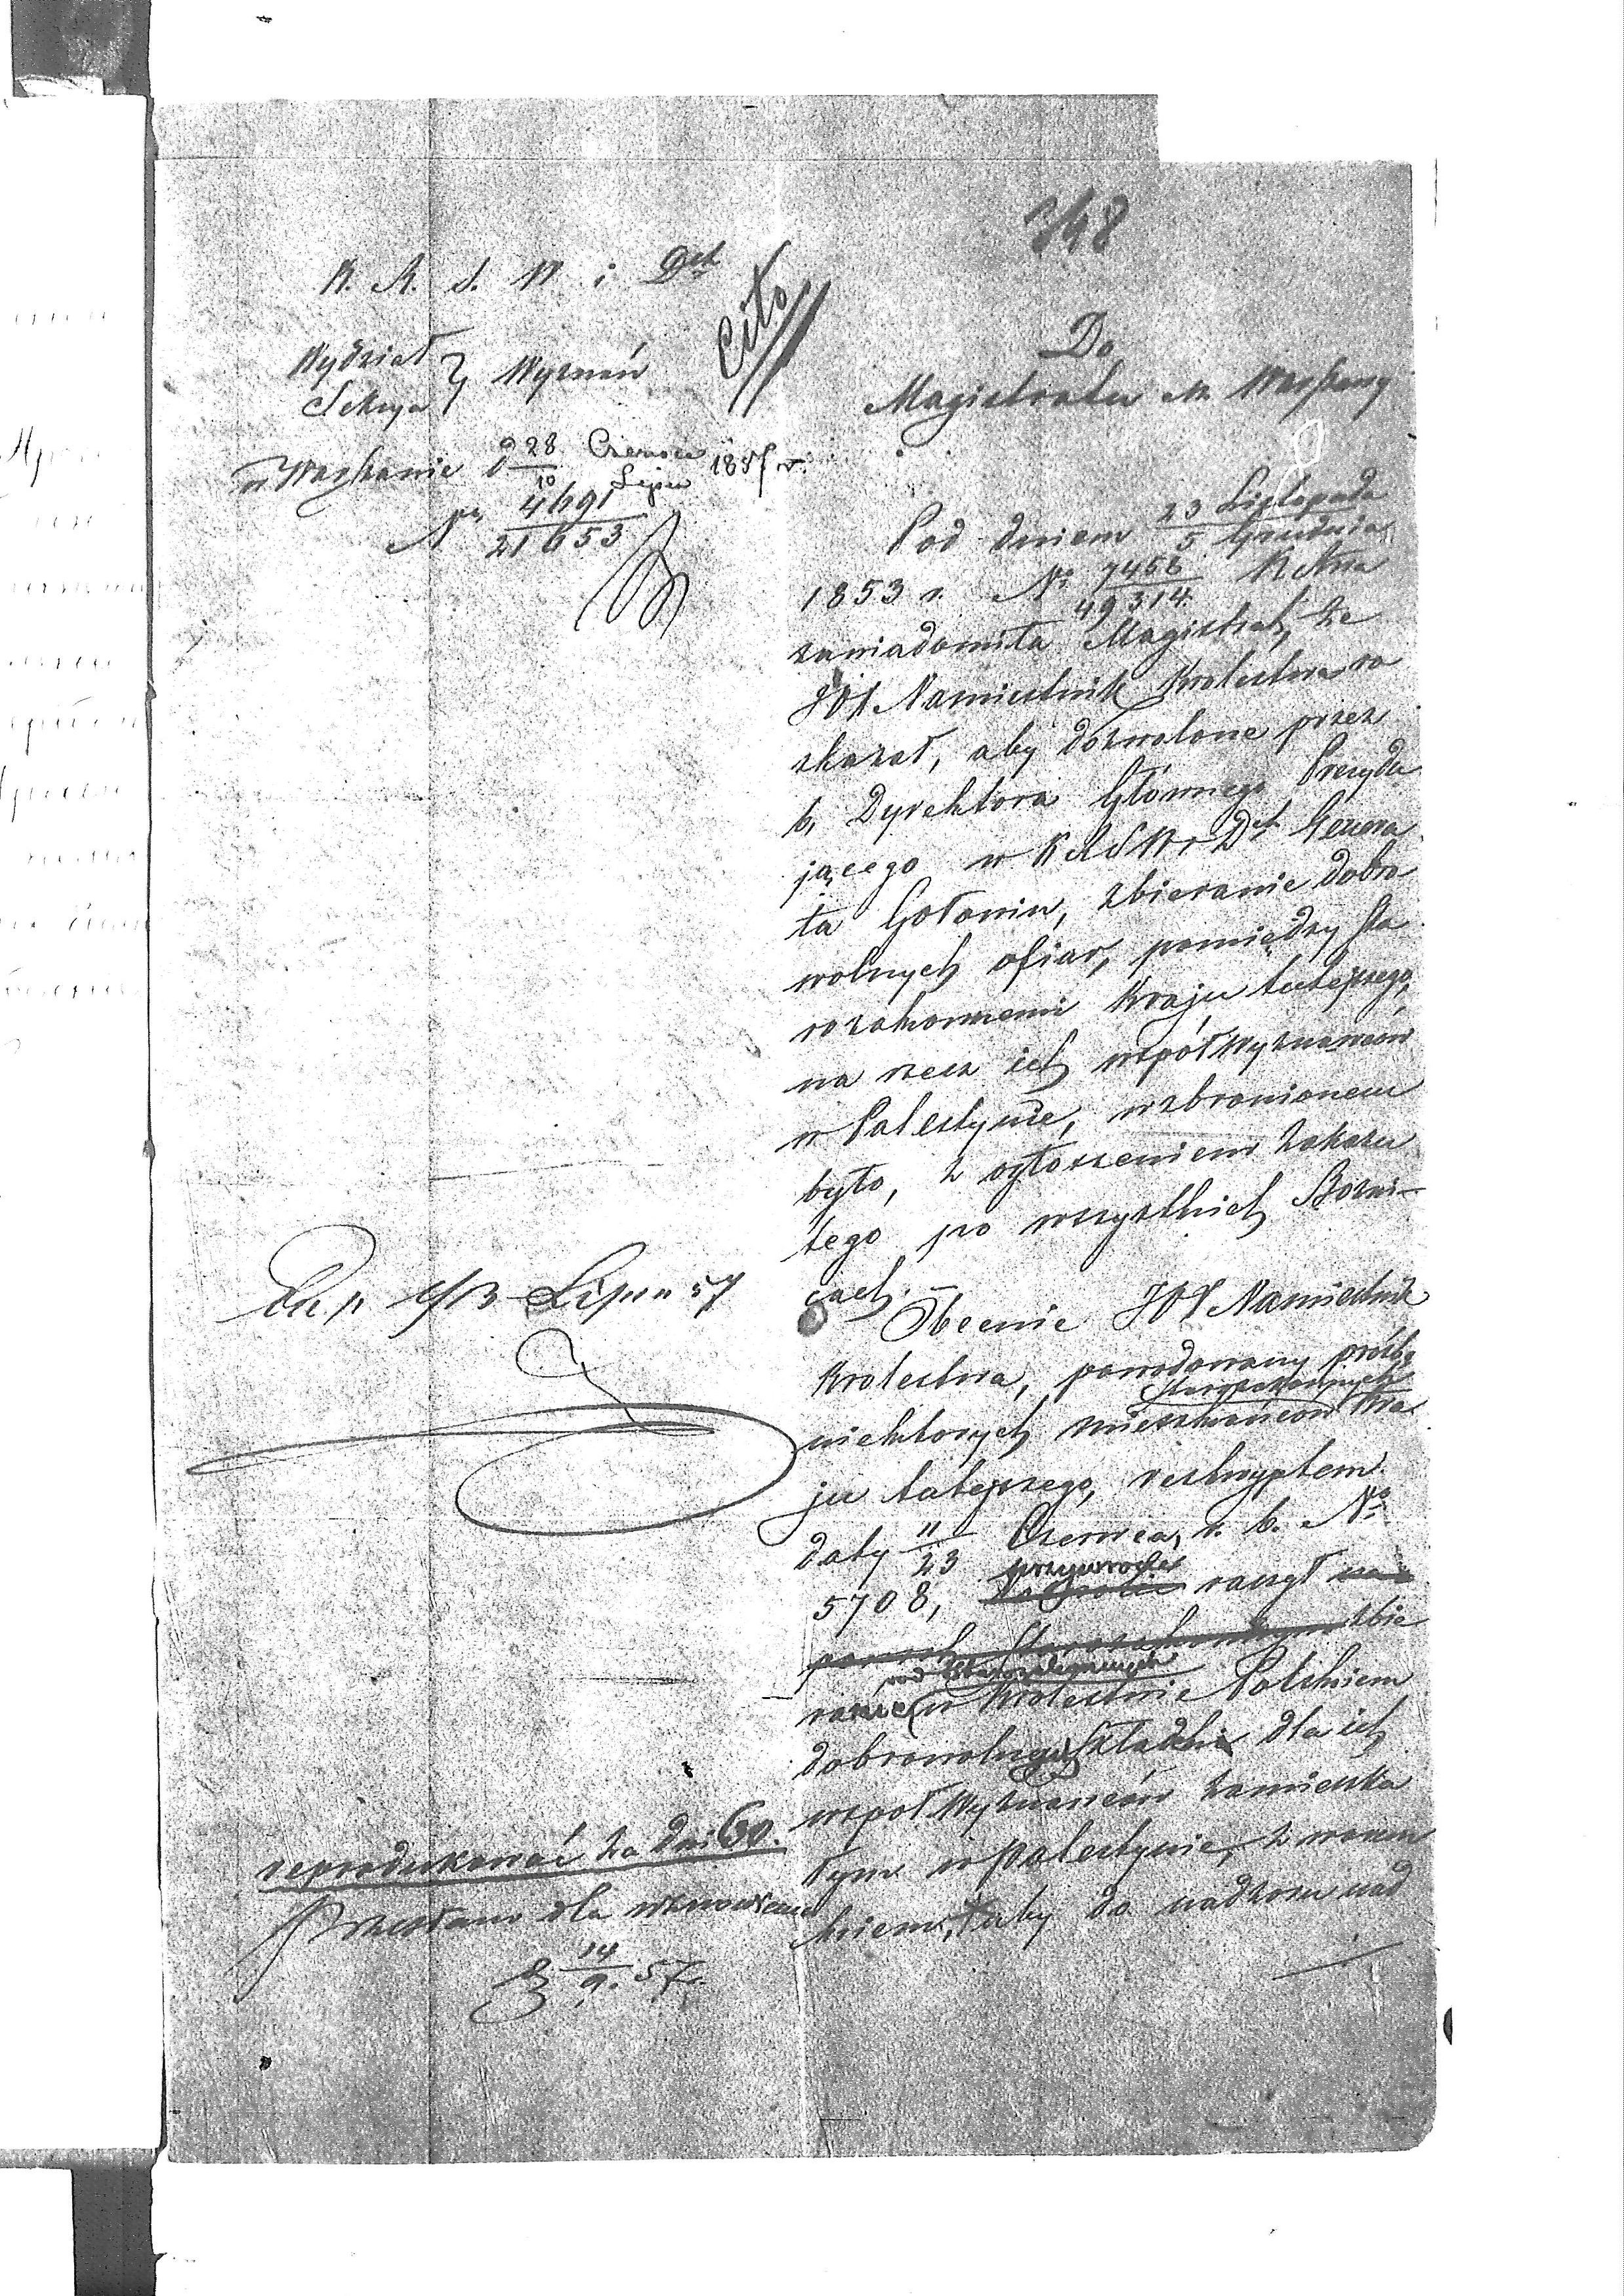 348
K. R. S. W. i Dch
Cito
Wydział
Sekcya } Wyznań
w Warszawie d 28/10 Czerwca/Lipca 1857 r.
No 4691/21653
Do
Magistratu M. Warszawy
Pod dniem 23 Listopada/5 Grudnia
1853 r. No 7458/49314 K Rssa
zawiadomiła Magistrat, że
JOX Namiestnik Krolestwa ro
zkazał, aby dozwolone przez
b, Dyrektora Głównego Prezydu
jącego w K R S W i Dch Genera
ła Gołowin, zbieranie dobro
wolnych ofiar, pomiędzy sta
rozakonnemi kraju tutejszego,
na rzecz ich współwyznawców
w Palestynie, wzbronionem
było, z ogłoszeniem zakazu
tego po wszystkich Bożni-
cach. –
Obecnie JOX Namiestnik
Krolestwa, powodowany prośbą
Starozakonnych
niektorych mieszkańców kra
ju tutejszego, reskryptem
daty 11/23 Czerwca, r. b. No
przywrócić
5708, raczył
zbie
od Starozakonnych
ranie w Krolestwie Polskiem
dobrowolnych składki dla ich
wspołwyznawców zamieszka
łym w Palestynie, z warun
kiem, aby do nadzoru nad
Exp. 1/13 Lipca 57
reprodukować za dni 60.
Przesłano dla wznowienia
d 14/9. 57.